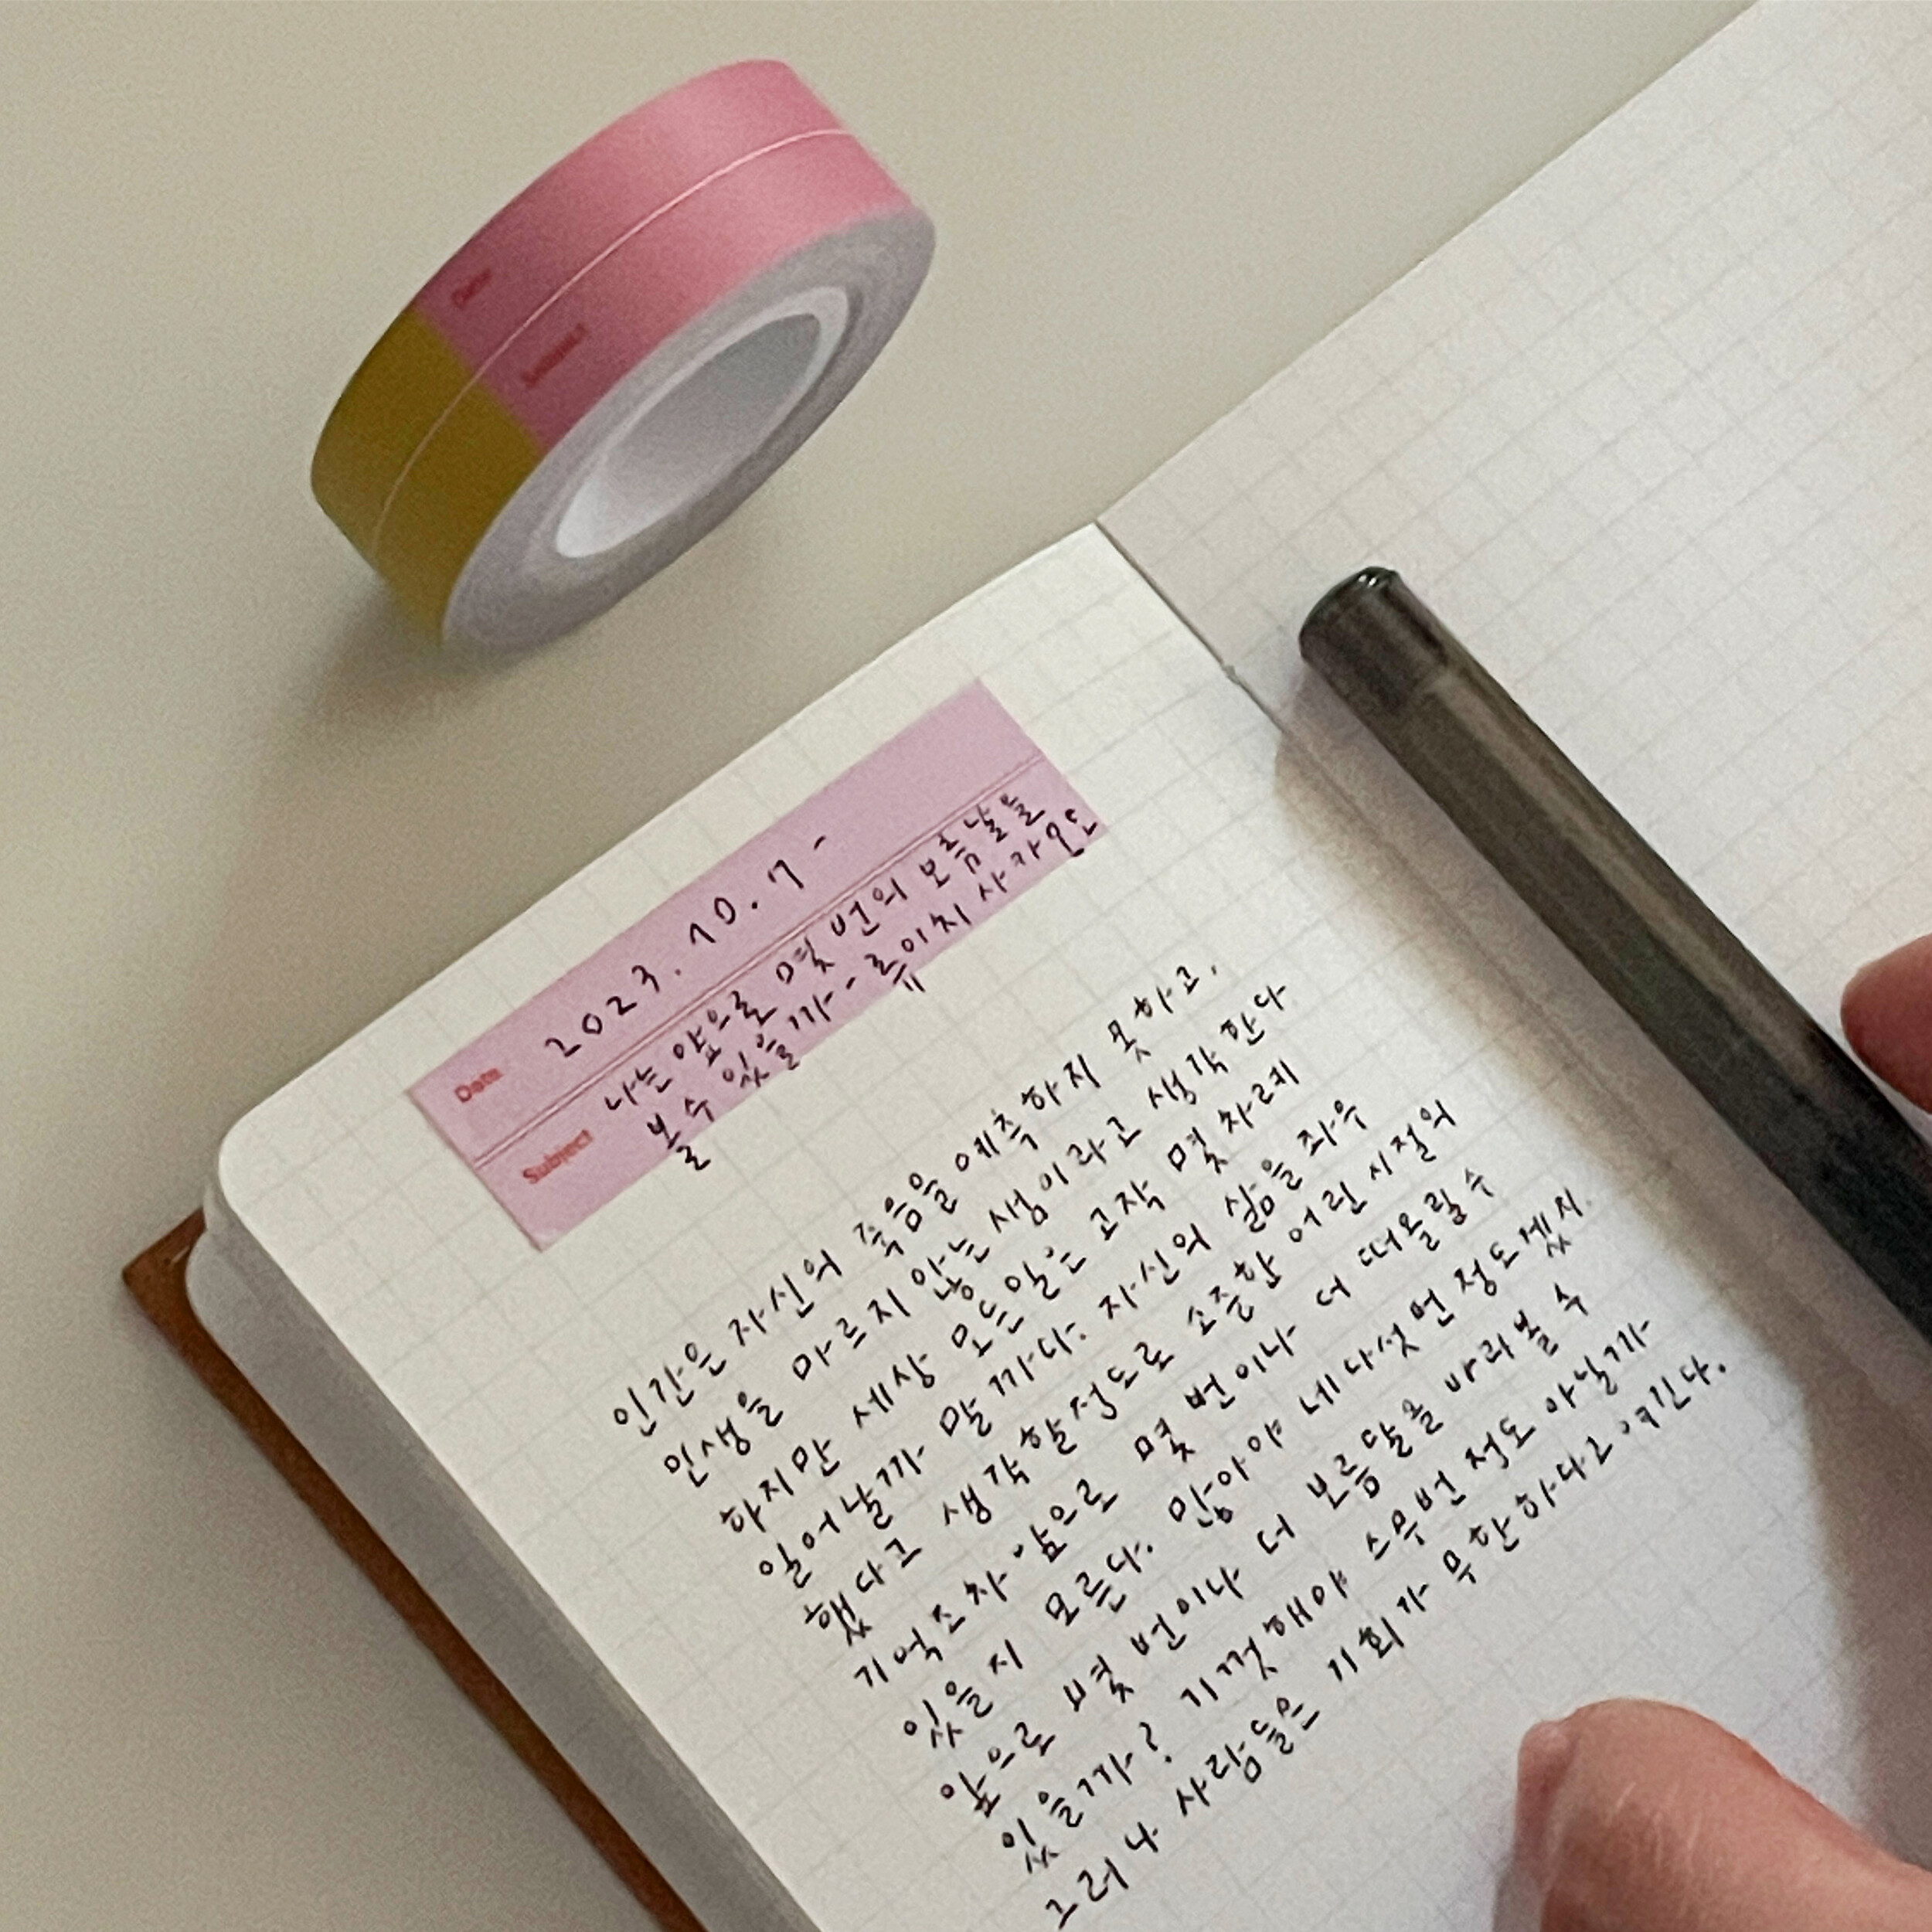 Date
Subject
Date 2023. 10. 7 -
Subject 나는 앞으로 몇 번의 보름날을
볼 수 있을까 - 류이치 사카모토
인간은 자신의 죽음을 예측하지 못하고,
인생을 마르지 않는 샘이라고 생각한다
하지만 세상 모든 일은 고작 몇 차례
일어날까 말까다. 자신의 삶을 좌우
했다고 생각할 정도로 소중한 어린 시절의
기억조차 앞으로 몇 번이나 더 떠올릴 수
있을지 모른다. 많아야 네다섯 번 정도겠지.
앞으로 몇 번이나 더 보름달을 바라볼 수
있을까? 기껏해야 스무번 정도 아닐까
그러나 사람들은 기회가 무한하다고 여긴다.